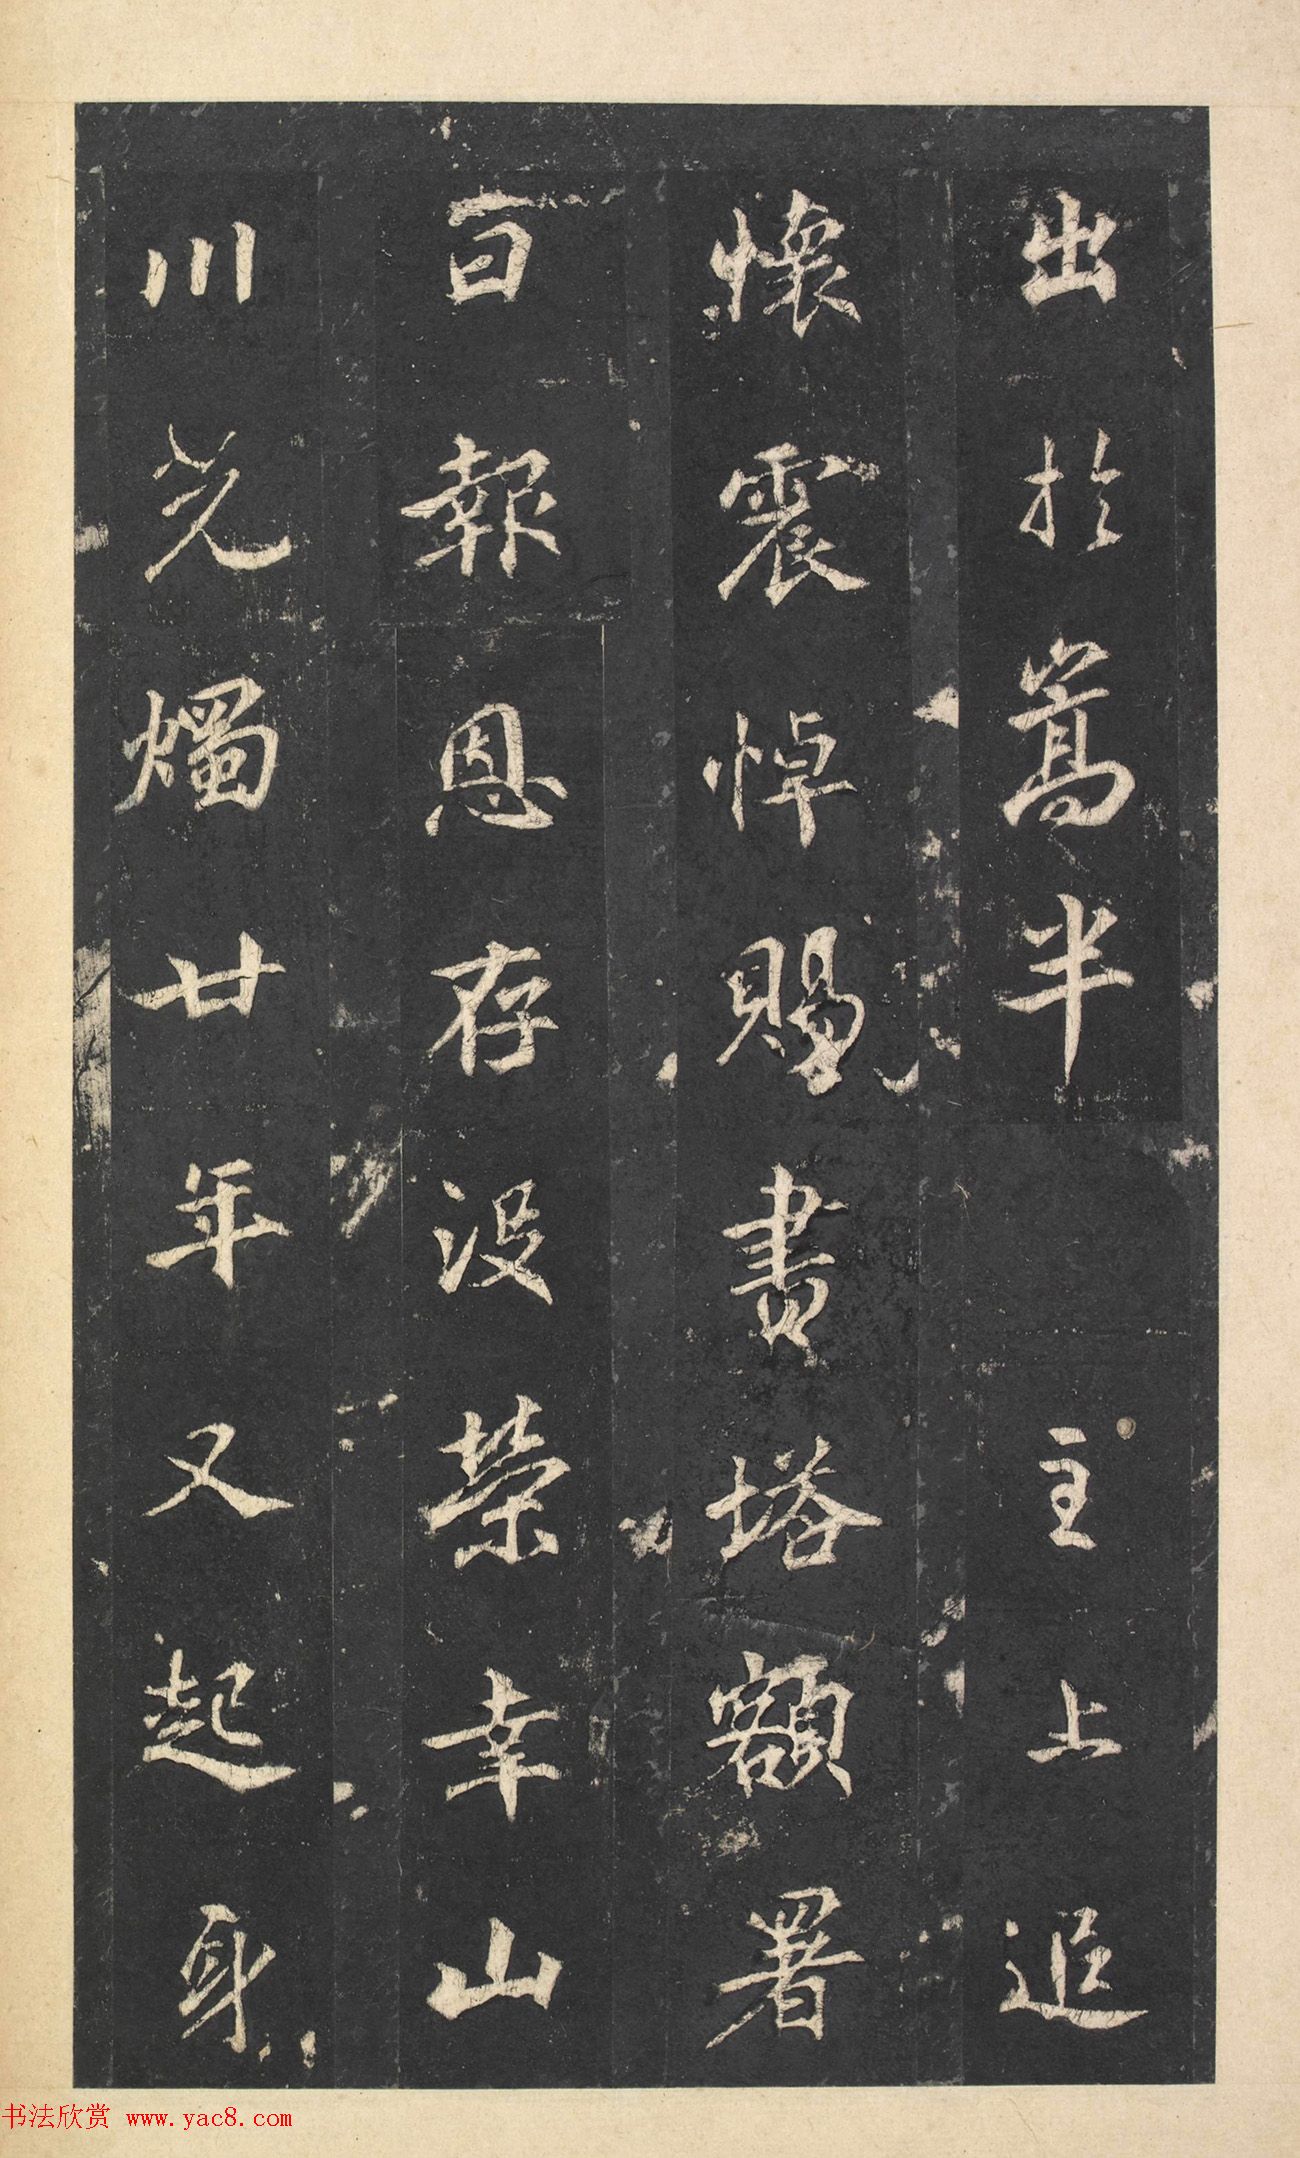 出於嵩半 主上追
懷震悼賜書塔額署
曰報恩存没榮幸山
川光燭廿年又起身
书法欣赏 www.yac8.com